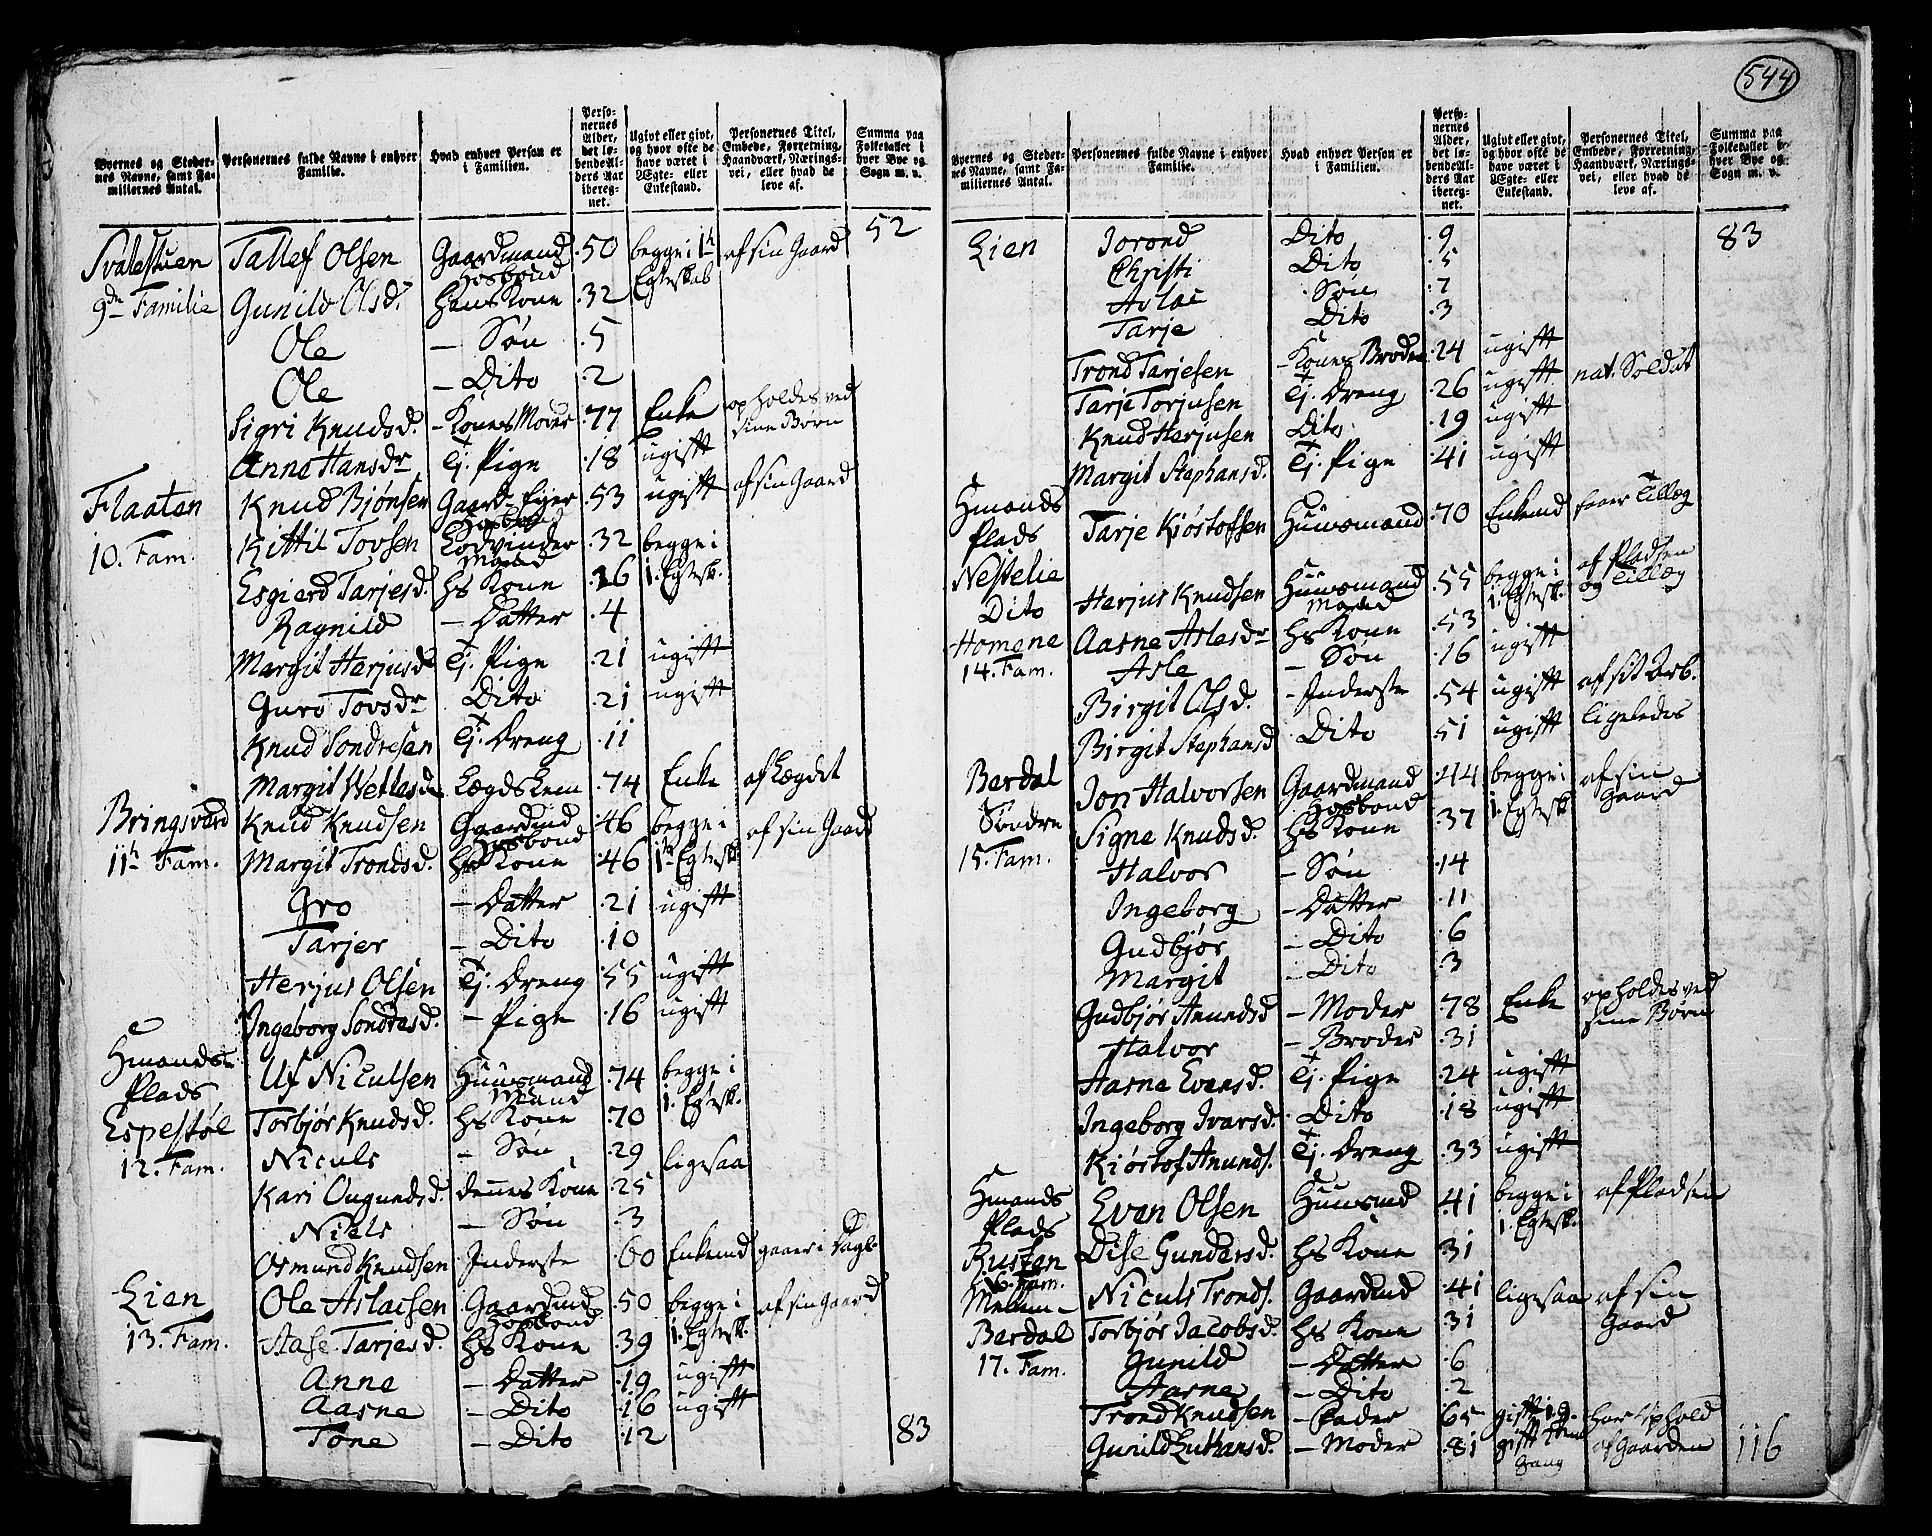 544
Byernes og Steder-
nes Navne, samt Fa-
miliernes Antal.
Personernes fulde Navne i enhver
Familie.
Hvad enhver Person er
i Familien.
Perso-
nernes
Alder,
det lø-
bende Al-
ders Aar
ibereg-
net.
Ugivt eller givt,
og hvor ofte de
have været i
Ægte- eller
Enkestand.
Personernes Titel,
Embede, Forretning,
Haandværk, Nærings-
vei, eller hvad de
leve af.
Summa paa
Folketallet i
hver Bye og
Sogn m. v.
52
Svalestuen Tallef Olsen Gaardmand 50 begge i 1te af sin Gaard
Hosbond Egteskab
9de Familie Gunild Olsd. Hans Kone 32
Ole – Søn 5
Ole – Dito 2
Sigri Knudsd. – Kones Moder 77 Enke opholdes ved
sine Børn
Anne Hansdr Tj. Pige 18 ugift
Flaaten Knud Bjønsen Gaard-Ejer 53 ugift af sin Gaard
10. Fam. Kittil Tovsen 32 begge i
Mand
Esgierd Tarjesd. Hs Kone 26 1. Egtesk.
Ragnild – Datter 4
Margit Herjusd. Tj. Pige 21 ugift
Guro Tovsdr Dito 21 ugift
Knud Sondresen Tj. Dreng 11
Margit Wetlesd. Lægdslem 74 Enke af Lægdet
Bringsværd Knud Knudsen Gaardmd 46 begge i af sin Gaard
Hosbond
11te Fam. Margit Trondsd. Hs Kone 46 1te Egtesk.
Gro – Datter 21 ugift
Tarjer – Dito 10
Herjus Olsen Tj. Dreng 55 ugift
Ingeborg Sondresd. – Pige 16 ugift
Hmands- Uf Niculsen Huusmand 74 begge i
Plads Mand
Espestøl Torbjør Knudsd. Hs Kone 70 1. Egtesk.
12. Fam. Niculs – Søn 29 ligesaa
Kari Ougnedsd. dennes Kone 25
Niels – Søn 3
Osmund Knudsen Inderste 60 Enkemd gaaer i Dagl.
Lien Ole Aslacsen Gaardmd 50 begge i af sin Gaard
Hosbond
13. Fam. Aase Tarjesd. Hs Kone 39 1. Egtesk.
Anne – Datter 19 ugift
Aasne – Dito 16 ugift
Tone – Dito 12
83
Byernes og Steder-
nes Navne, samt Fa-
miliernes Antal.
Personernes fulde Navne i enhver
Familie.
Hvad enhver Person er
i Familien.
Perso-
nernes
Alder,
det lø-
bende Al-
ders Aar
ibereg-
net.
Ugivt eller givt,
og hvor ofte de
have været i
Ægte- eller
Enkestand.
Personernes Titel,
Embede, Forretning,
Haandværk, Nærings-
vei, eller hvad de
leve af.
Summa paa
Folketallet i
hver Bye og
Sogn m. v.
83
Lien Jorond Dito 9
Christi Dito 5
Aslac Søn 7
Tarje Dito 3
Trond Tarjesen – Kones Broder 24 ugift
Tarje Torjusen Tj. Dreng 26 ugift nat. Soldat
Knud Herjusen Dito 19 ugift
Margit Stephansd. Tj. Pige 41 ugift
Hmands
Plads Tarje Kjøstofsen Huusmand 70 Enkemd faaer Tillæg
Nestelie
Dito Herjus Knudsen Huusmand 55 begge i af Pladsen
Mand 1. Egtesk. og Tillæg
Homene Aasne Aslesdr Hs Kone 53
14. Fam. Asle – Søn 16 ugift
Birgit Olsd. – Inderste 54 ugift af sit Arb.
Birgit Stephansd Dito 51 ugift ligeledes
Berdal Jon Halvorsen Gaardmand 44 begge i af sin
Hosbond 1. Egtesk. Gaard
Søndre Signe Knudsd. Hs Kone 37
15. Fam. Halvor – Søn 14
Ingeborg – Datter 11
Gudbjør – Dito 6
Margit – Dito 3
Gudbjør Anundsd – Moder 78 Enke opholdes ved
sine Børn
Halvor – Broder 31
Aasne Evensd. Tj. Pige 24 ugift
Ingeborg Ivarsd. Dito 18 ugift
Kjøstof Anunds. Tj. Dreng 33 ugift
Hmands
Plads Even Olsen Huusmd 41 begge i af Pladsen
1. Egtesk.
Rusten Dise Gundersd. Hs Kone 31
16. Fam.
Mellem- Niculs Tronds. Gaardmd 41 ligesaa af sin
Gaard
Berdal Torbjør Jacobsd. Hs Kone 31
17. Fam. Gunild – Datter 6
Aasne – Dito 2
Trond Knudsen – Fader 65 har Ophold
Gunild Luthansd. – Moder 81 gift af Gaarden
Gang
116